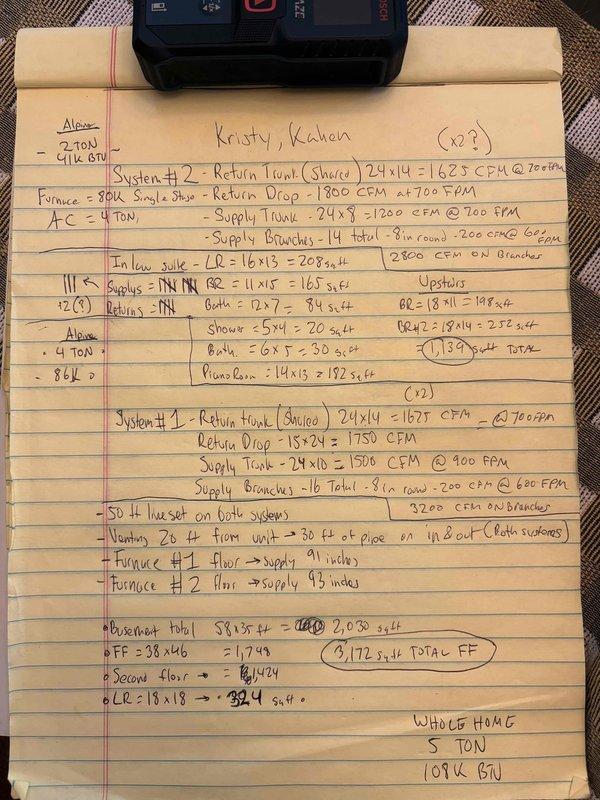 BOSCH
BLAZE
Alpine
- 2 TON -
41K BTU
Kristy, Kahen (x2?)
System # 2 - Return Trunk (Shared) 24x14 = 1625 CFM @ 700 FPM
Furnace = 80K Single Stage - Return Drop - 1800 CFM at 700 FPM
AC = 4 TON, - Supply Trunk - 24x8 = 1200 CFM @ 700 FPM
- Supply Branches - 14 total - 8 in round - 200 CFM @ 600 FPM
2800 CFM ON Branches
In law suite - LR = 16x13 = 208 sq ft
||| ← Supplys = |||| |||| BR = 11x15 = 165 sq ft Upstairs
+2(?) Returns = |||| Bath = 12x7 = 84 sq ft BR = 18x11 = 198 sq ft
Alpine Shower = 5x4 = 20 sq ft BR#2 = 18x14 = 252 sq ft
• 4 TON • Bath. = 6x5 = 30 sq ft = 1,139 sq ft TOTAL
- 86K • Piano Room = 14x13 = 182 sq ft
(x2)
System # 1 - Return trunk (Shared) 24x14 = 1625 CFM - @ 700 FPM
Return Drop - 15x24 = 1750 CFM
Supply Trunk - 24x10 = 1500 CFM @ 900 FPM
Supply Branches - 16 Total - 8 in round - 200 CFM @ 600 FPM
3200 CFM ON Branches
- 50 ft lineset on both systems
- Venting 20 ft from unit → 30 ft of pipe on in & out (Both systems)
- Furnace #1 floor → supply 91 inches
- Furnace #2 floor → supply 93 inches
• Basement total 58x35 ft = 2,030 sq ft
• FF = 38x46 = 1,748 3,172 sq ft TOTAL FF
• Second floor → = 1,424
• LR = 18x18 → • 324 sq ft •
WHOLE HOME
5 TON
108K BTU